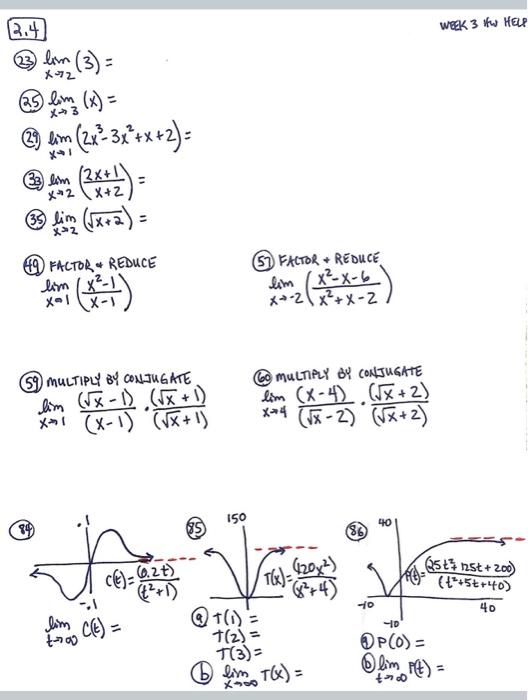 2.4
WEEK 3 HW HELP
23 lim x→2 (3) =
25 lim x→3 (x) =
29 lim x→1 (2x³-3x²+x+2) =
33 lim x→2 (2x+1 / x+2) =
35 lim x→2 (√x+2) =
49 FACTOR & REDUCE
lim x→1 (x²-1 / x-1)
57 FACTOR & REDUCE
lim x→-2 (x²-x-6 / x²+x-2)
59 MULTIPLY BY CONJUGATE
lim x→1 (√x-1)/(x-1) · (√x+1)/(√x+1)
60 MULTIPLY BY CONJUGATE
lim x→4 (x-4)/(√x-2) · (√x+2)/(√x+2)
84
.1
C(t) = (0.2t)/(t²+1)
-.1
lim t→∞ C(t) =
85
150
T(x) = (120x²)/(x²+4)
a T(1) =
T(2) =
T(3) =
b lim x→∞ T(x) =
86
40
P(t) = (25t²+125t+200)/(t²+5t+40)
-10
40
-10
a P(0) =
b lim t→∞ P(t) =